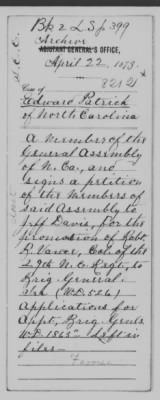 Bk 2 L S p 399
Archive
ADJUTANT GENERAL'S OFFICE,
April 22, 1878.
8212
Case of
Edward Patrick
of North Carolina
A Member of the
General Assembly
of N. Ca., and
signs a petition
of the Members of
said Assembly to
Jeff Davis, for the
promotion of Robt.
B. Vance, Col. of the
29th N. C. Regt., to
Brig. General.
(W.D. 526)
Applications for
Appt., Brig. Genls.
W.D. 1863" Left in
files